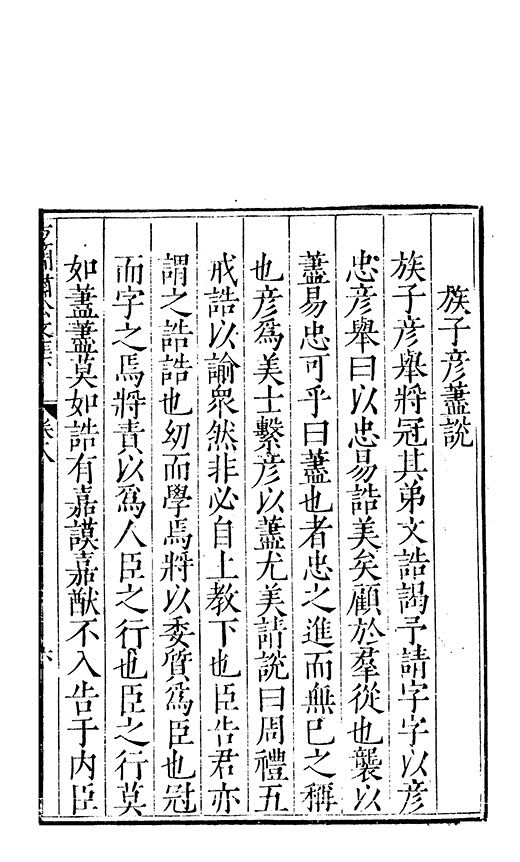 族子彦藎說
族子彦舉將冠其弟文誥謁予請字字以彦
忠彦舉曰以忠易誥美矣顧於羣從也襲以
藎易忠可乎曰藎也者忠之進而無已之稱
也彦爲美士繫彦以藎尤美請說曰周禮五
戒誥以諭衆然非必自上教下也臣告君亦
謂之誥誥也幼而學焉將以委質爲臣也冠
而字之焉將責以爲人臣之行也臣之行莫
如藎藎莫如誥有嘉謨嘉猷不入告于内臣
卷八
六